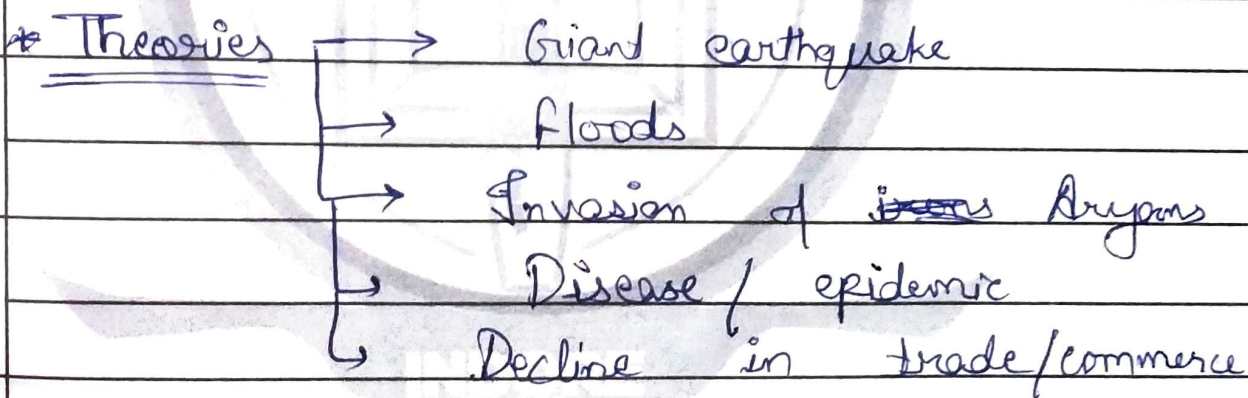 * Theories → Giant earthquake
→ floods
→ Invasion of Aryans
→ Disease / epidemic
→ Decline in trade/commerce